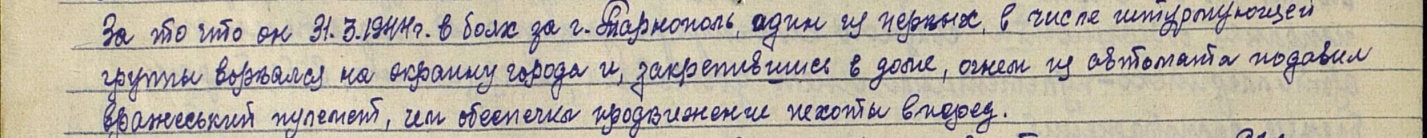 За то что он 31.3.1944г. в боях за г. Тарнополь, один из первых, в числе штурмующей
группы ворвался на окраину города и, закрепившись в доме, огнем из автомата подавил
вражеський пулемет, чем обеспечил продвижение пехоты вперед.